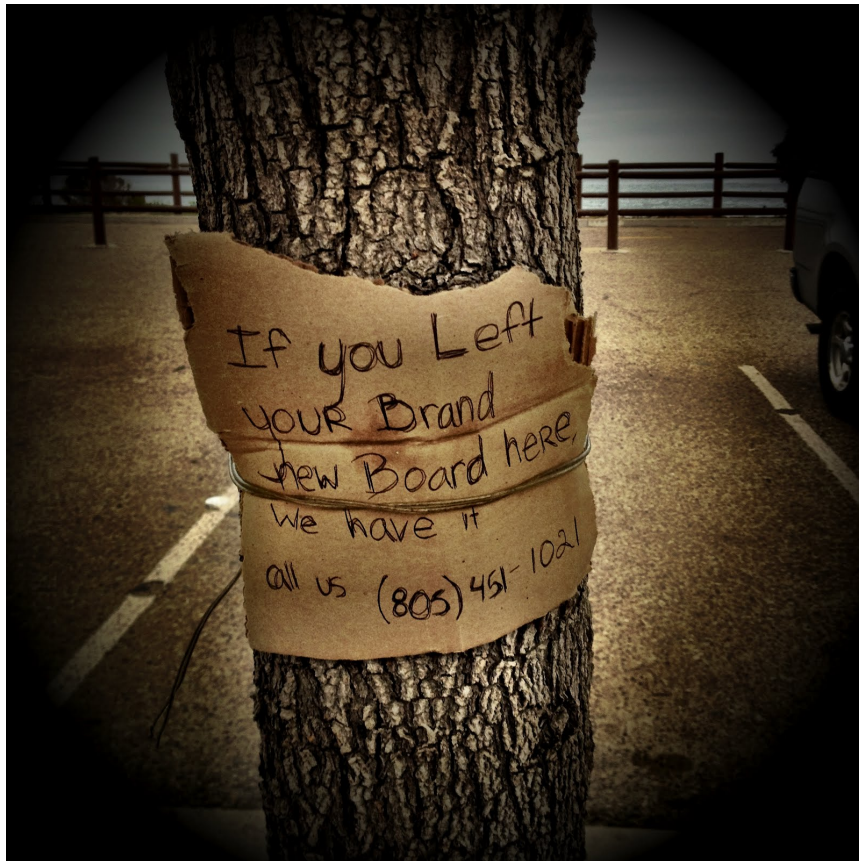 If you Left
youR Brand
new Board here,
We have it
call us (805) 451-1021